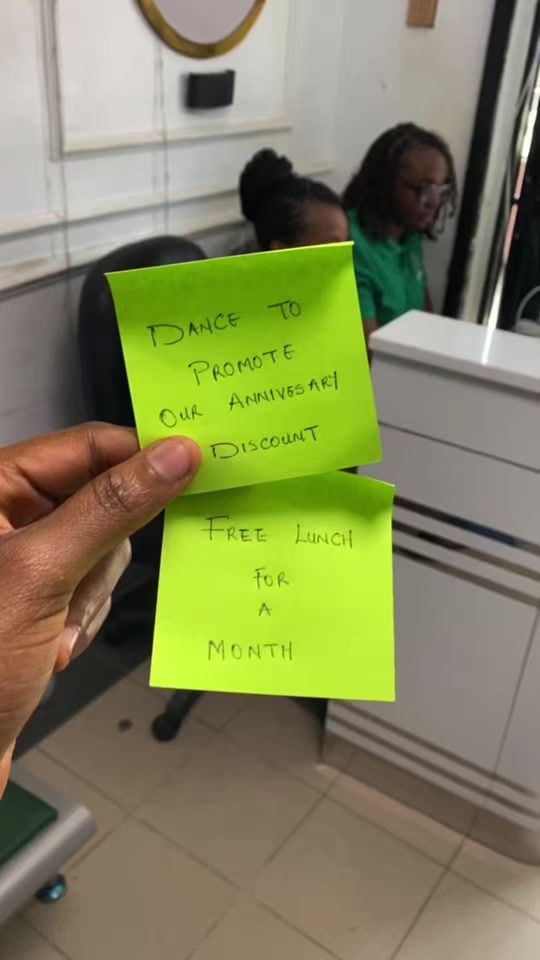 DANCE TO
PROMOTE
OUR ANNIVESARY
DISCOUNT
FREE LUNCH
FOR
A
MONTH